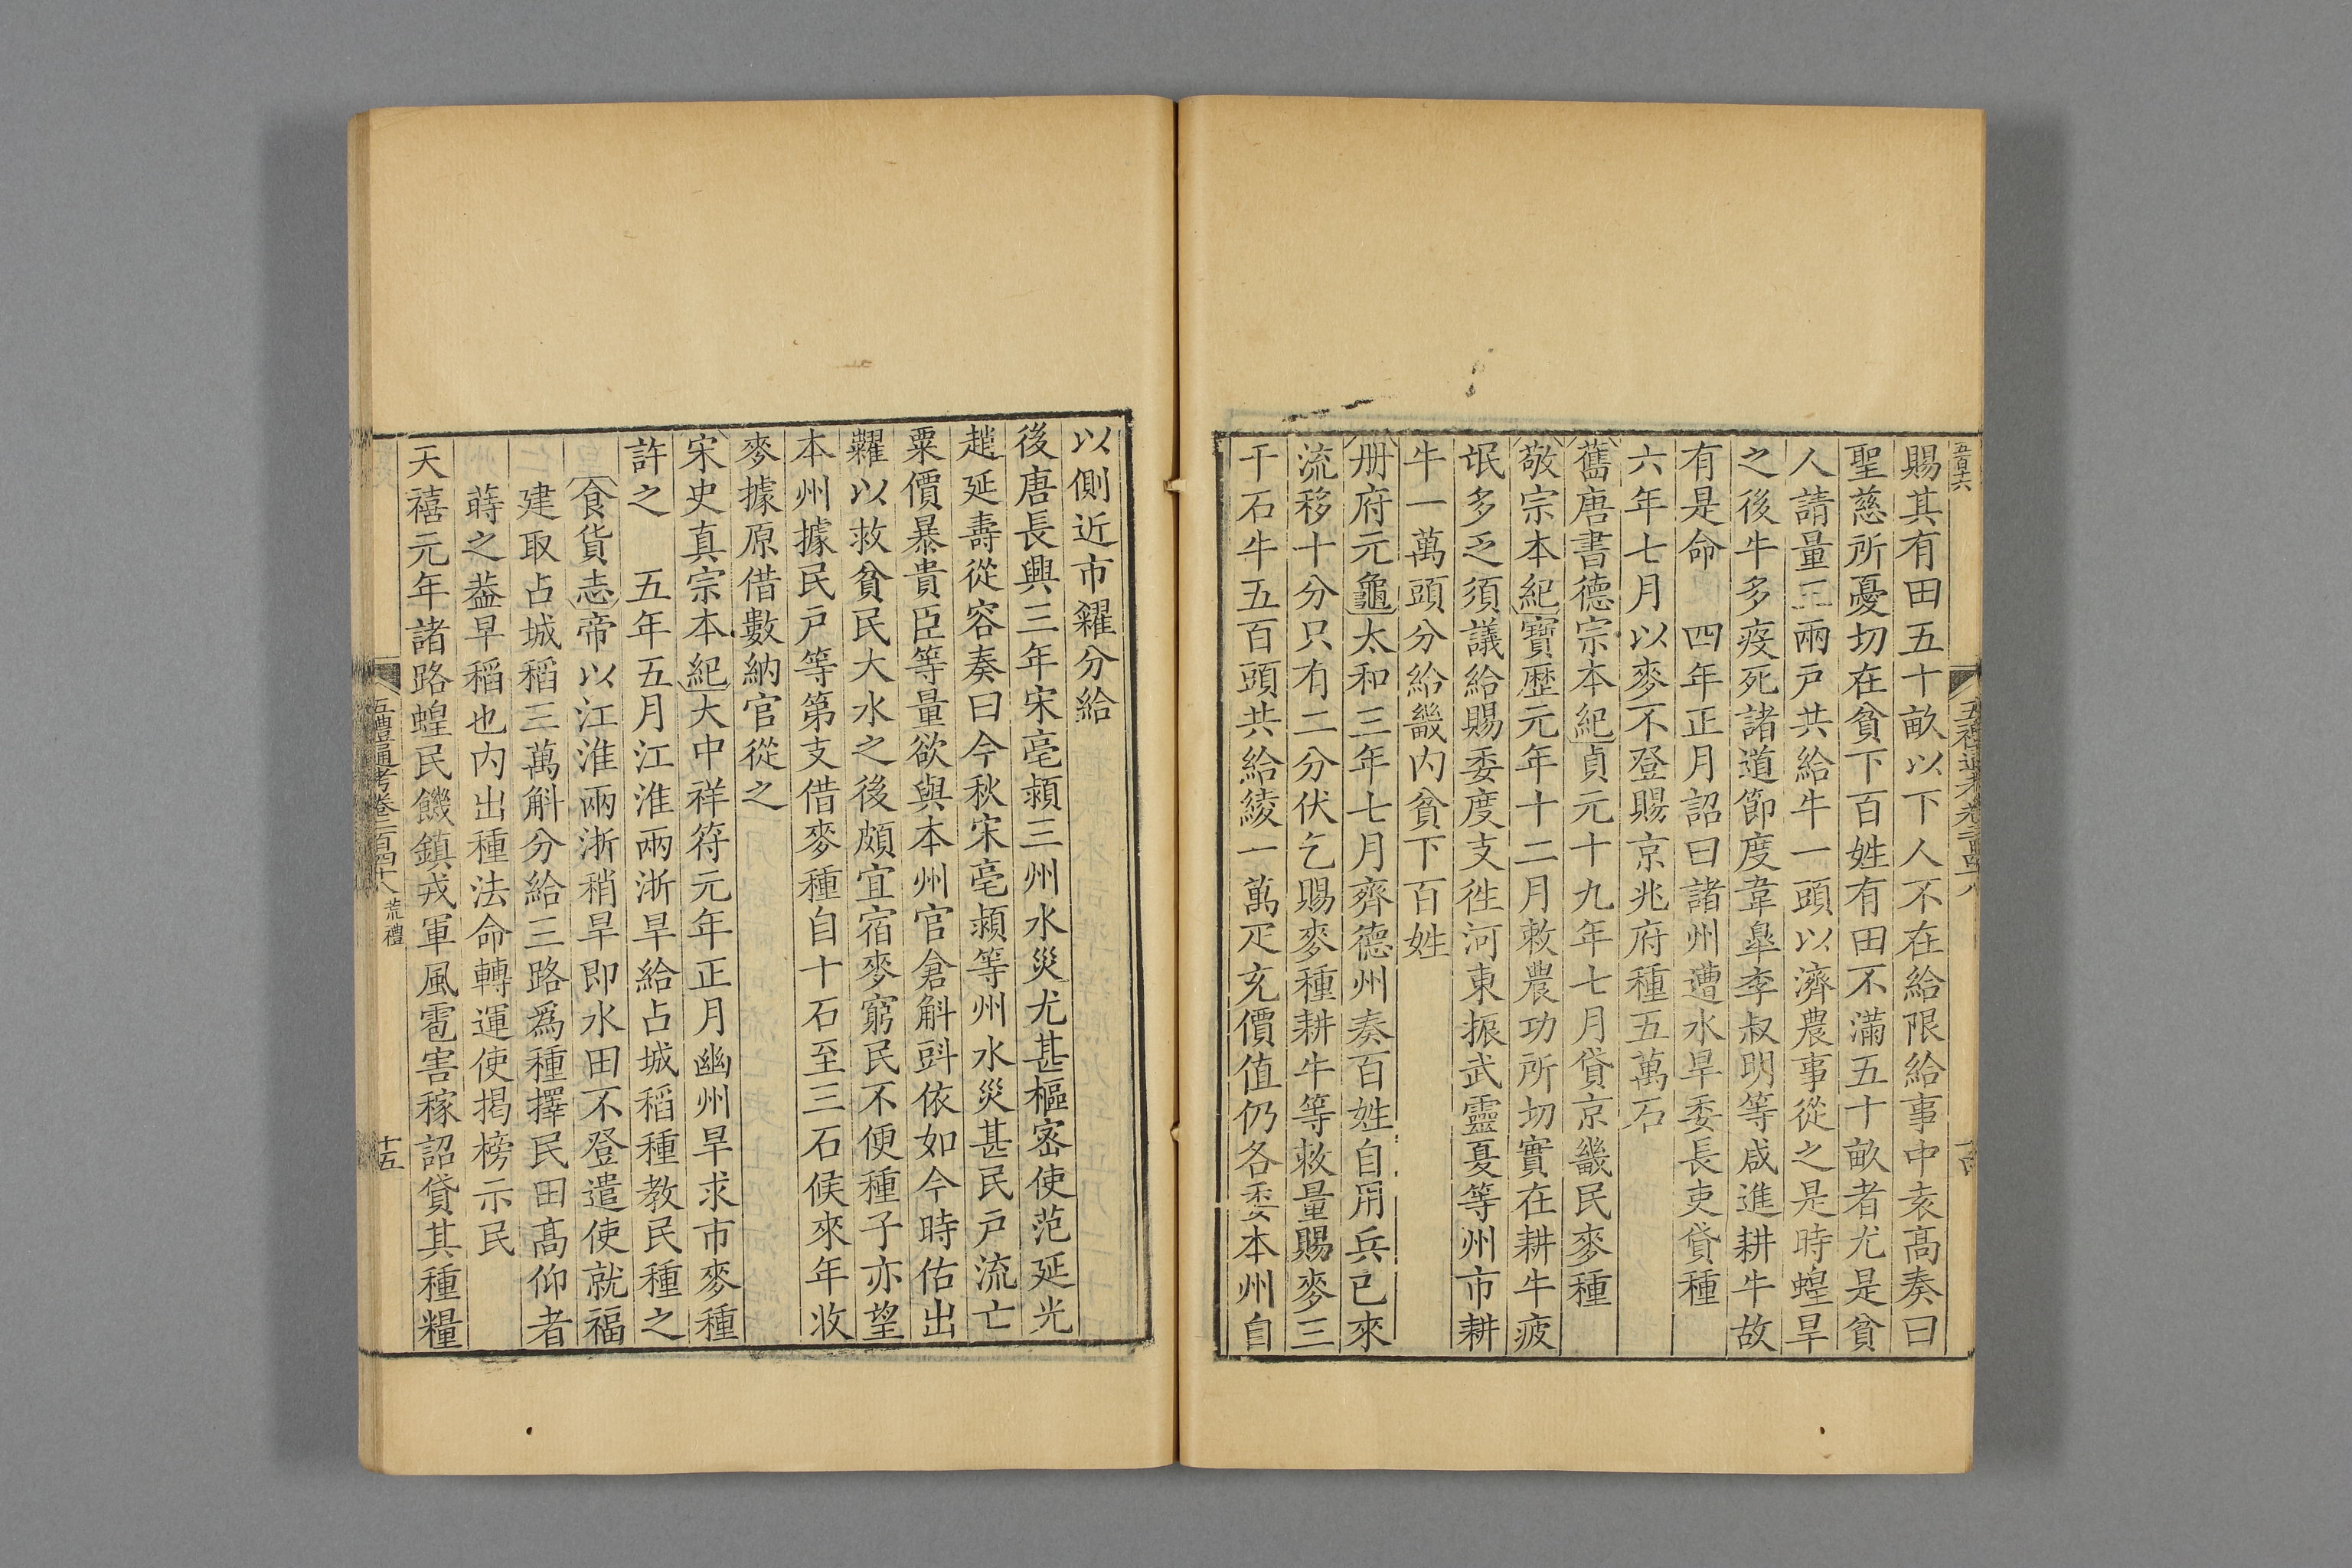 賜其有田五十畝以下人不在給限給事中袁高奏曰
聖慈所憂切在貧下百姓有田不滿五十畝者尤是貧
人請量三兩戸共給牛一頭以濟農事從之是時蝗旱
之後牛多疫死諸道節度韋臯李叔明等咸進耕牛故
有是命　四年正月詔曰諸州遭水旱委長吏貸種
六年七月以麥不登賜京兆府種五萬石
舊唐書德宗本紀貞元十九年七月貸京畿民麥種
敬宗本紀寶歷元年十二月敕農功所切實在耕牛疲
氓多乏須議給賜委度支徃河東振武靈夏等州市耕
牛一萬頭分給畿内貧下百姓
册府元龜太和三年七月齊德州奏百姓自用兵已來
流移十分只有二分伏乞賜麥種耕牛等敕量賜麥三
千石牛五百頭共給綾一萬疋充價值仍各委本州自
以側近市糴分給
後唐長興三年宋亳潁三州水災尤甚樞密使范延光
趙延壽從容奏曰今秋宋亳潁等州水災甚民戸流亡
粟價暴貴臣等量欲與本州官倉斛㪷依如今時估出
糶以救貧民大水之後頗宜宿麥窮民不便種子亦望
本州據民戸等第支借麥種自十石至三石候來年收
麥據原借數納官從之
宋史真宗本紀大中祥符元年正月幽州旱求市麥種
許之　五年五月江淮兩浙旱給占城稻種教民種之
食貨志帝以江淮兩浙稍旱即水田不登遣使就福
建取占城稻三萬斛分給三路爲種擇民田髙仰者
蒔之葢早稻也内出種法命轉運使揭榜示民
天禧元年諸路蝗民饑鎮戎軍風雹害稼詔貸其種糧
五禮通考卷二百四十八　荒禮
十五